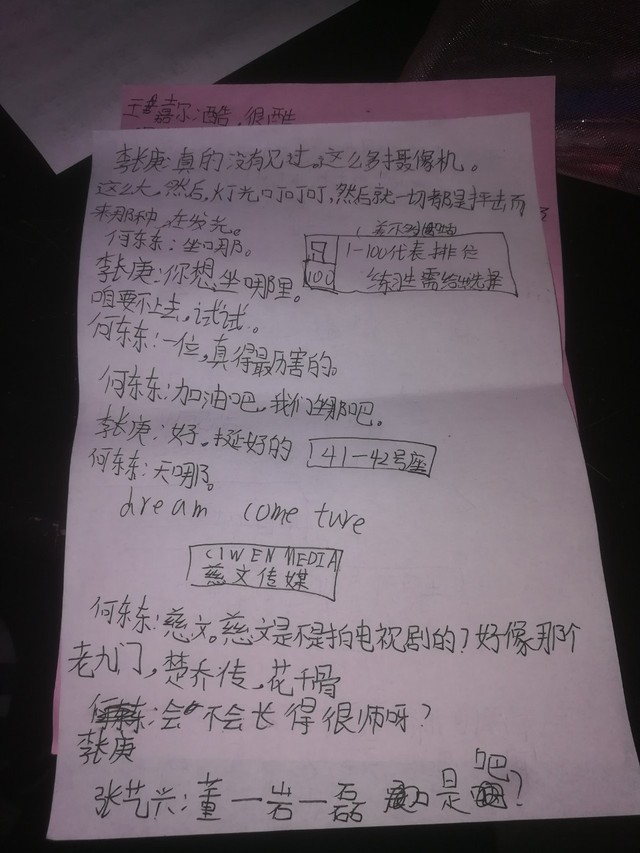 王嘉尔:酷,很酷
李长庚:真的没有见过。这么多摄像机。
这么大,然后,灯光叮叮叮,然后就一切都是抨击而
来那种,在发光。
何东东:坐哪。
1-100代表排位
100
练习生需给出选择
李长庚:你想坐哪里。
咱要不上去,试试。
何东东:一位,真得最厉害的。
何东东:加油吧,我们坐那吧。
李长庚:好,挺好的
41-42号座
何东东:天哪。
dream come ture
CIWEN MEDIA
慈文传媒
何东东:慈文。慈文是不是拍电视剧的?好像那个
老九门,楚乔传,花千骨
:会不会长得很师呀?
李长庚
张艺兴:董一岩一磊 是吧?